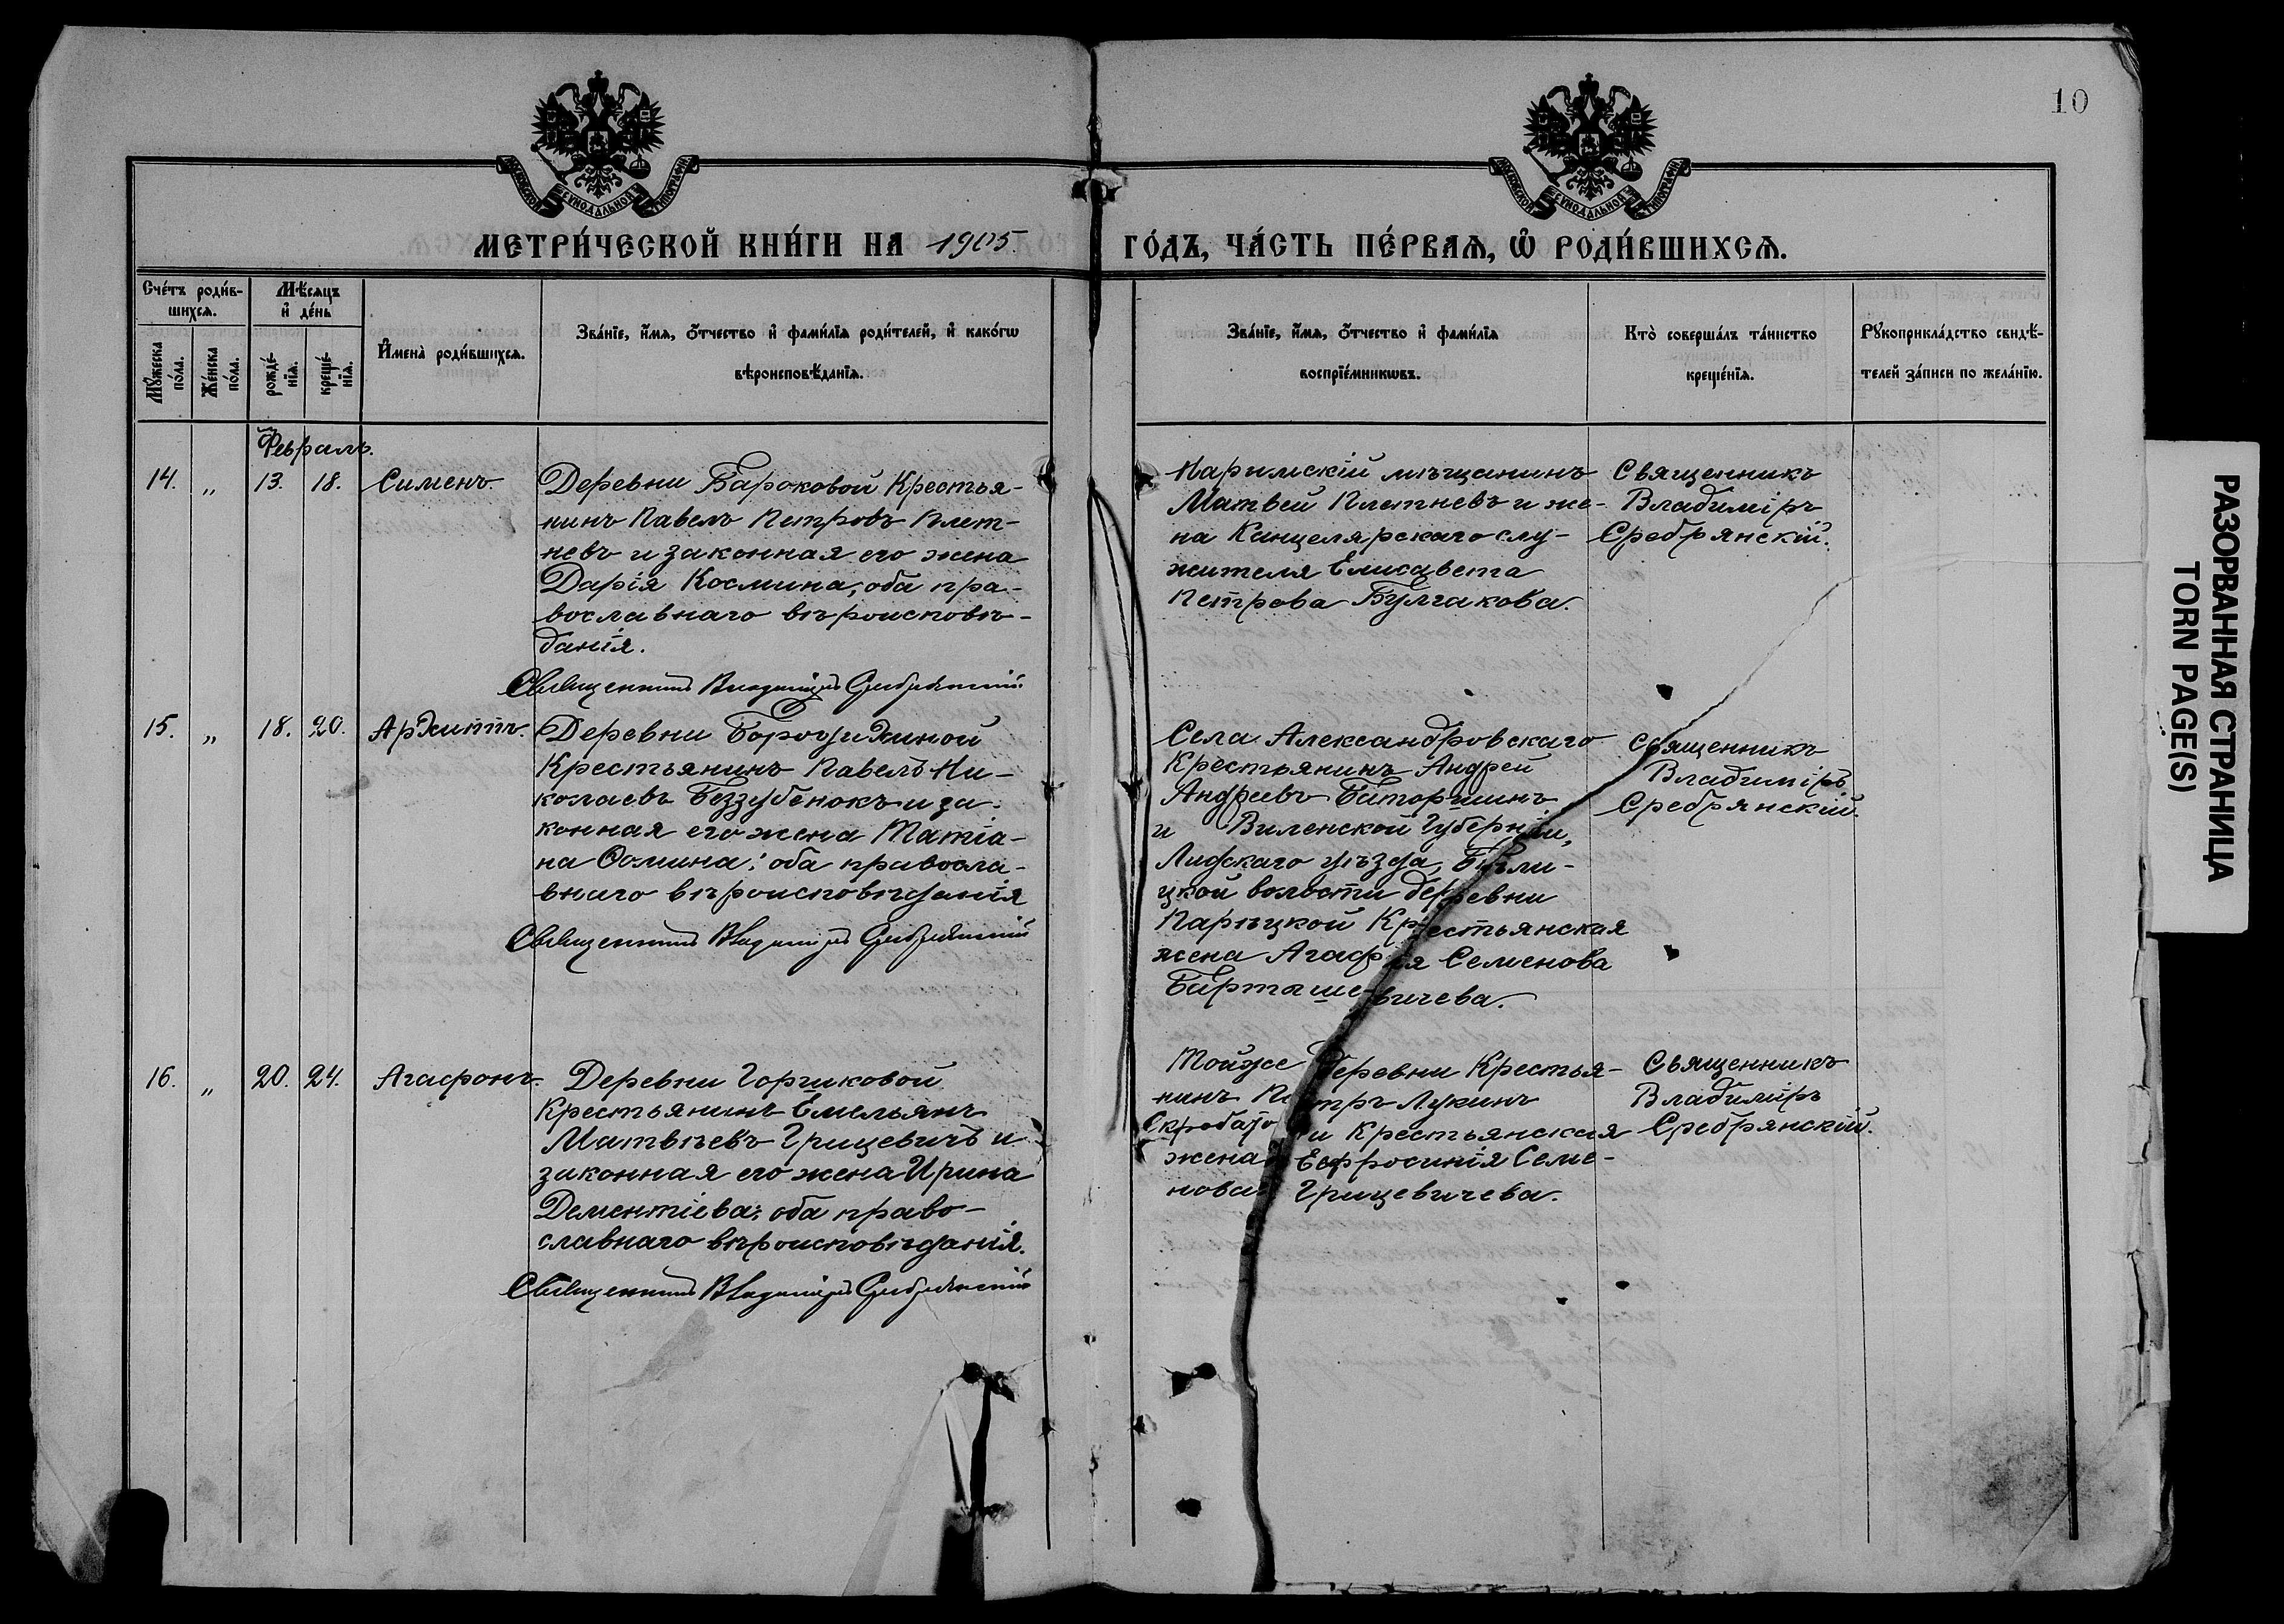 10
МОСКОВСКОЙ СѴНОДАЛЬНОЙ ТИПОГРАФІИ
МОСКОВСКОЙ СѴНОДАЛЬНОЙ ТИПОГРАФІИ
МЕТРИ́ЧЕСКОЙ КНИ́ГИ НА 1905.
ГО́ДЪ, ЧА́СТЬ ПЕ́РВАѦ, Ѽ РОДИ́ВШИХСѦ.
Сче́тъ роди́в-
шихсѧ.
Мꙋ́жеска
по́ла.
Же́нска
по́ла.
Мѣ́сѧцъ
и҆ де́нь
рожде́-
нїѧ.
креще́-
нїѧ.
И҆мена̀ роди́вшихсѧ.
Зва́нїе, и҆́мѧ, ѻ҆́тчество и҆ фами́лїѧ роди́телей, и҆ како́гѡ
вѣроисповѣ́данїѧ.
Зва́нїе, и҆́мѧ, ѻ҆́тчество и҆ фами́лїѧ
воспрїе́мникѡвъ.
Кто̀ соверша́лъ та́инство
креще́нїѧ.
Рꙋкоприкла́дство свидѣ́-
телей за́писи по жела́нїю.
Февраль.
14. „ 13. 18. Сименъ.
Деревни Бароковой Крестья-
нинъ Павелъ Петровъ Плет-
невъ и законная его жена
Дарія Космина, оба пра-
вославнаго вѣроисповѣ-
данія.
Священникъ Владиміръ Сребрянскій
Нарымскій мѣщанинъ
Матвей Плетневъ и же-
на Канцелярскаго слу-
жителя Елисавета
Петрова Булгакова.
Священникъ
Владиміръ
Сребрянскій.
15. „ 18. 20. Архиппъ.
Деревни
Крестьянинъ Павелъ Ни-
колаевъ Беззубенокъ и за-
конная его жена Татіа-
на Фомина; оба правосла-
внаго вѣроисповѣданія
Священникъ Владиміръ Сребрянскій
Села Александровскаго
Крестьянинъ Андрей
Андреевъ Баторшинъ
и Виленской Губерніи,
Лидскаго уѣзда, Бѣли-
цкой волости деревни
Парѣцкой Крестьянская
жена Агафія Семенова
Барташевичева.
Священникъ
Владиміръ
Сребрянскій.
16. „ 20. 24. Агафонъ.
Деревни Горчиковой
Крестьянинъ Емельянъ
Матвѣевъ Грицевичъ и
законная его жена Ирина
Дементіева; оба право-
славнаго вѣроисповѣданія.
Священникъ Владиміръ Сребрянскій
Тойже деревни Крестья-
нинъ Петръ Лукинъ
и Крестьянская
жена Евфросинія Семе-
нова Грицевичева.
Священникъ
Владиміръ
Сребрянскій.
РАЗОРВАННАЯ СТРАНИЦА
TORN PAGE(S)